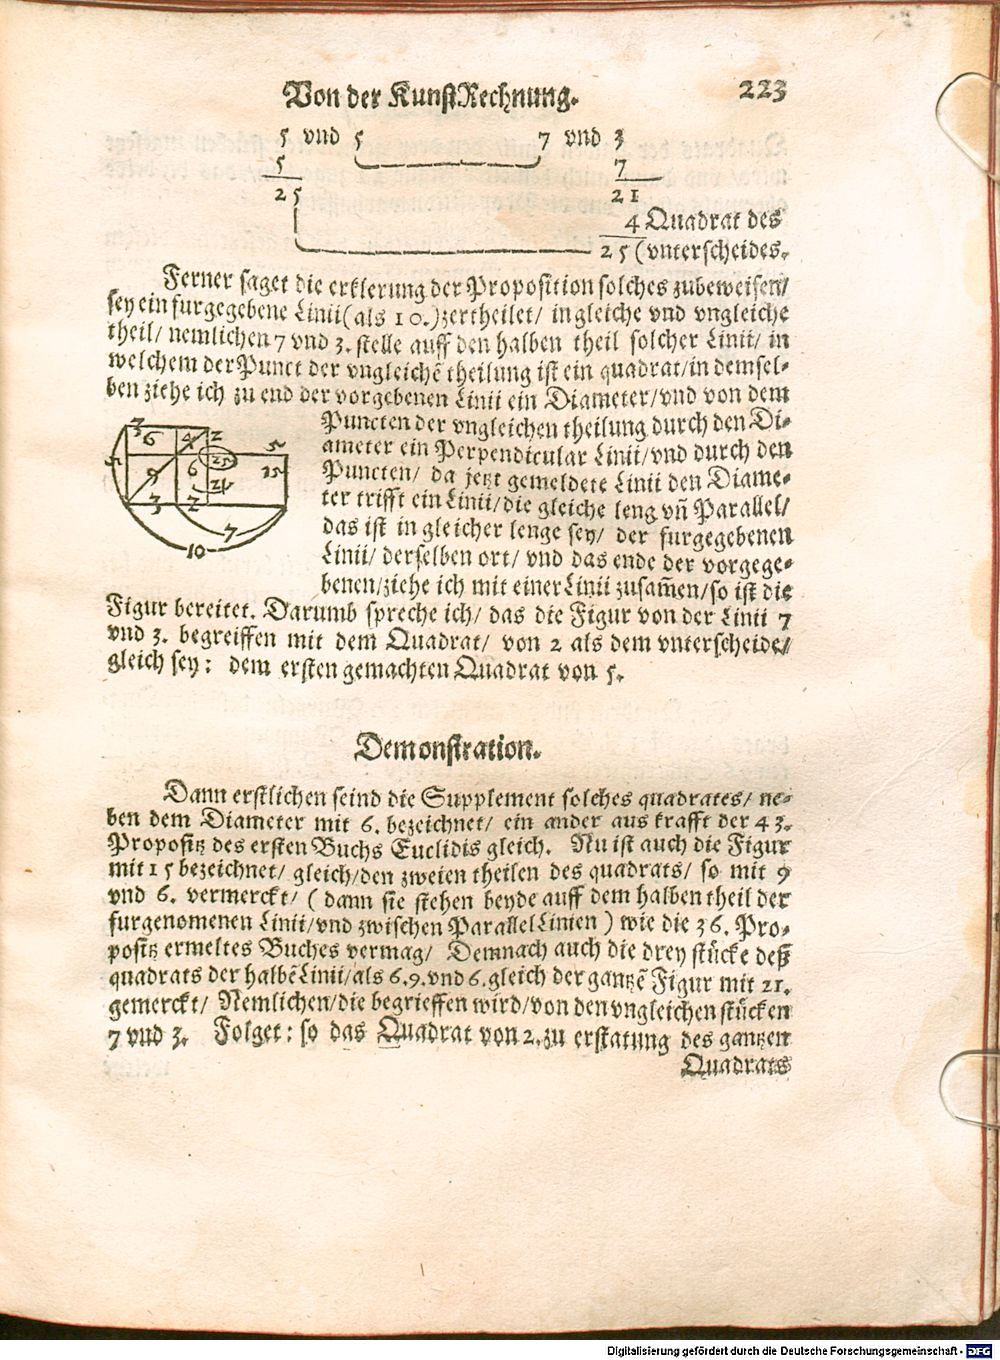 Von der KunstRechnung. 223
5 vnd 5 7 vnd 3
5 7
25 21
4 Quadrat des
25 (vnterscheides.
Ferner saget die erklerung der Proposition solches zubeweisen/
sey ein furgegebene Linii (als 10.) zertheilet/ in gleiche vnd vngleiche
theil/ nemlichen 7 vnd 3. stelle auff den halben theil solcher Linii/ in
welchem der Punct der vngleichẽ theilung ist ein quadrat/ in demsel-
ben ziehe ich zu end der vorgebenen Linii ein Diameter/ vnd von dem
Puncten der vngleichen theilung durch den Di-
ameter ein Perpendicular Linii/ vnd durch den
Puncten/ da jetzt gemeldete Linii den Diame-
ter trifft ein Linii/ die gleiche leng vñ Parallel/
das ist in gleicher lenge sey/ der furgegebenen
Linii/ derselben ort/ vnd das ende der vorgege-
benen/ ziehe ich mit einer Linii zusam̃en/ so ist die
3 6 4 2 5
5 25 15
9 6 21
3 2
7
10
Figur bereitet. Darumb spreche ich/ das die Figur von der Linii 7
vnd 3. begreiffen mit dem Quadrat/ von 2 als dem vnterscheide/
gleich sey: dem ersten gemachten Quadrat von 5.
Demonstration.
Dann erstlichen seind die Supplement solches quadrates/ ne-
ben dem Diameter mit 6. bezeichnet/ ein ander aus krafft der 43.
Propositz des ersten Buchs Euclidis gleich. Nu ist auch die Figur
mit 15 bezeichnet/ gleich/ den zweien theilen des quadrats/ so mit 9
vnd 6. vermerckt/ (dann sie stehen beyde auff dem halben theil der
furgenomenen Linii/ vnd zwischen Parallel Linien) wie die 36. Pro-
positz ermeltes Buches vermag/ Demnach auch die drey stücke deß
quadrats der halbẽ Linii/ als 6. 9. vnd 6. gleich der gantzẽ Figur mit 21.
gemerckt/ Nemlichen/ die begrieffen wird/ von den vngleichen stücken
7 vnd 3. Folget: so das Quadrat von 2. zu erstatung des gantzen
Quadrats
Digitalisierung gefördert durch die Deutsche Forschungsgemeinschaft - DFG